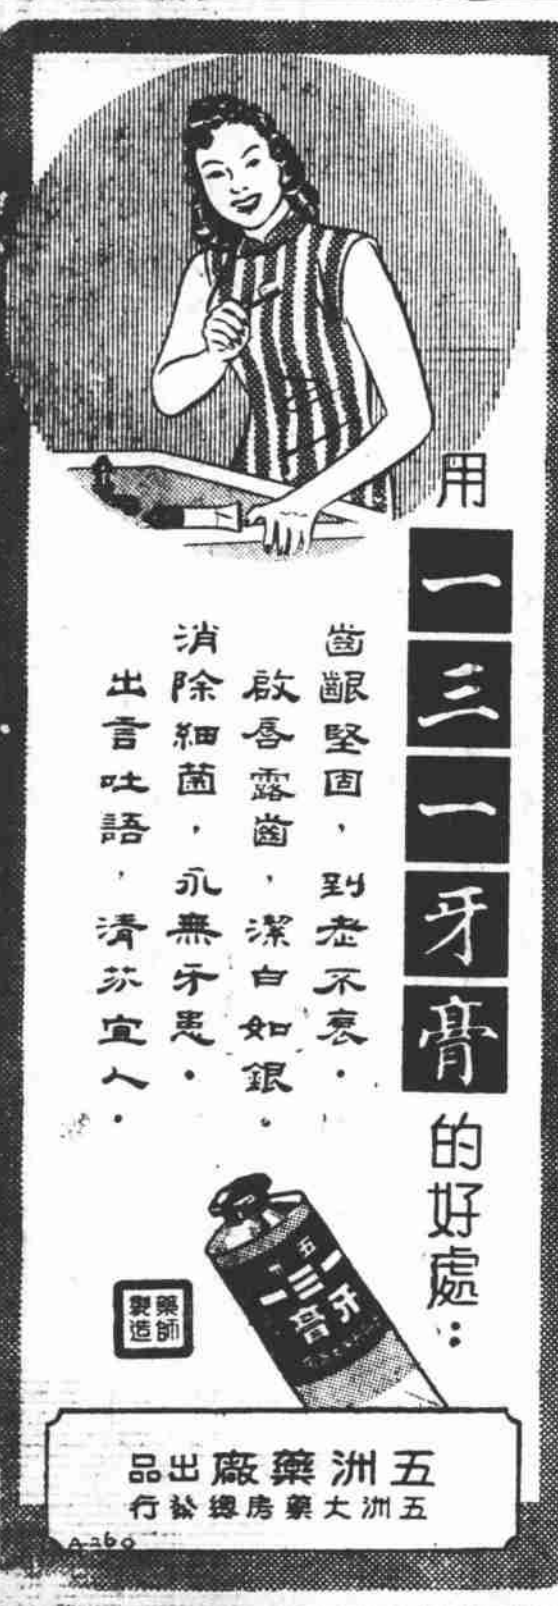 用一三一牙膏的好處：
齒齦堅固，到老不衰．
啟唇露齒，潔白如銀．
消除細菌，永無牙患．
出言吐語，清芬宜人．
五
一三一
牙膏
藥師
製造
五洲藥廠出品
五洲大藥房總發行
A-260